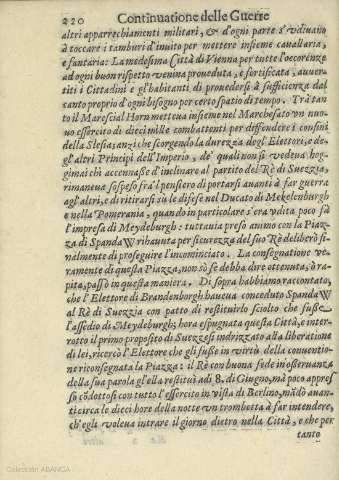 220 Continuatione delle Guerre
altri apparrechiamenti militari, & d'ogni parte s'vdiuano
à toccare i tamburi d'inuito per mettere insieme cauallaria,
e fantaria: La medesima Città di Vienna per tutte l'occorenze
ad ogni buon rispetto venina proueduta, e fortificata, auuer-
titi i Cittadini e gl'habitanti di prouedersi à sufficienza dal
canto proprio d'ogni bisogno per certo spatio di tempo. Trà tan-
to il Marescial Horn metteua insieme nel Marchesato vn nuo-
uo essercito di dieci mille combattenti per diffendere i confini
della Slesia; anzi che scorgendo la durezza degl'Elettori, e de-
gl'altri Principi dell'Imperio, de' quali non si vedeua hog-
gimai chi accennasse d'inclinare al partito del Rè di Suezzia,
rimaneua sospeso frà'l pensiero di portarsi auanti à far guerra
agl'altri, e di ritirarsi su le difese nel Ducato di Mekelenburgh
e nella Pomerania, quando in particolare s'era vdita poco fà
l'impresa di Meydeburgh: tuttauia preso animo con la Piaz-
za di SpandaW rihauuta per sicurezza del suo Rè deliberò fi-
nalmente di proseguire l'incominciato. La consegnatione ve-
ramente di questa Piazza, non sò se debba dire ottenuta, ò ra-
pita, passò in questa maniera. Di sopra habbiamo raccontato,
che l'Elettore di Brandenborgh haueua conceduto SpandaW
al Rè di Suezzia con patto di restituirlo sciolto che fusse
l'assedio di Meydeburgh; hora espugnata questa Città, e inter-
rotto il primo proposito di Suezzesi indrizzato alla liberatione
di lei, ricercò l'Elettore che gli fusse in virtù della conuentio-
ne riconsegnata la Piazza: il Rè con buona fede in osseruanza
della sua parola gl'ella restituì adi 8. di Giugno, mà poco appres-
so cōdottosi con tutto l'essercito in vista di Berlino, mādò auan-
ti circa le dieci hore della notte vn trombetta à far intendere,
ch'egli voleua intrare il giorno dietro nella Città, e che per
tanto
Colección ABANCA